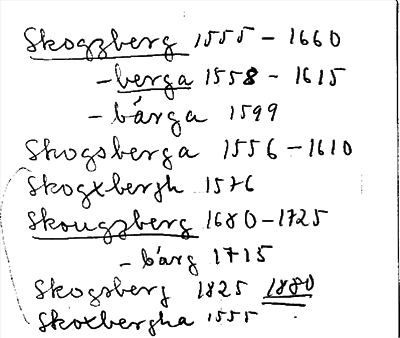 Skogzberg 1555 - 1660
- berga 1558 - 1615
- bärga 1599
Skogsberga 1556 - 1610
Skogxbergh 1576
Skougzberg 1680 - 1725
- bärg 1715
Skogsberg 1825 1880
Skoxbergha 1555